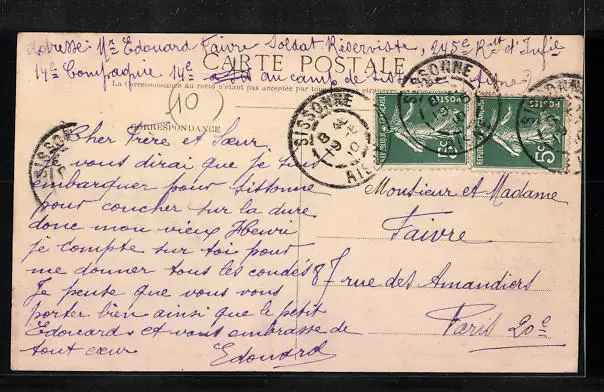 Adresse: Mr Edouard Faivre Soldat Réserviste, 245e Rmt d'Infie
CARTE POSTALE
14e Compagnie 14e au camp de
La Correspondance au recto n'est pas acceptée par tous
(10)
CORRESPONDANCE
SISSONNE
AISNE
RÉPUBLIQUE FRANÇAISE
POSTES
5c
Cher Frère et Sœur
vous dirai que je suis
embarquer pour Sissonne
pour coucher sur la dure
donc mon vieux Henri
je compte sur toi pour
me donner tous les
Je pense que vous vous
porter bien ainsi que le petit
Edouard et vous embrasse de
tout cœur Edouard
Monsieur et Madame
Faivre
87 rue des Amandiers
Paris 20e